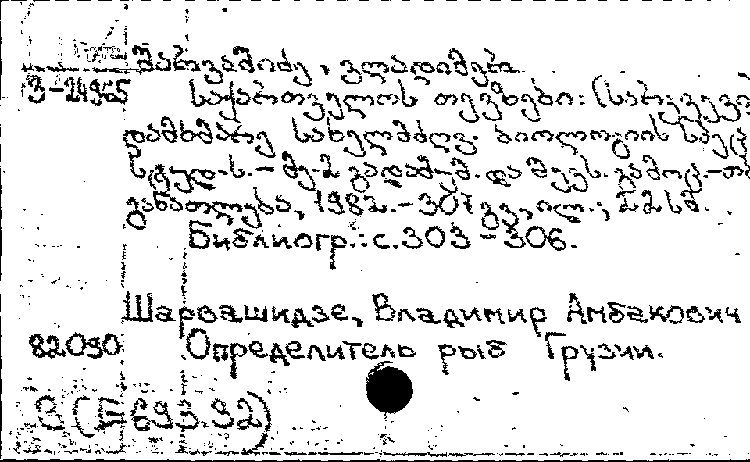 შარვაშიძე, ვლადიმერ
З-24965 საქართველოს თევზები: (სარკვევი
დამხმარე სახელმძღვ. ბიოლოგიის
სტუდ. ს. – მე-2 გადამუშ. და შევს. გამოც. – თბ.
განათლება, 1982. – 307 გვ., ილ.; 22 სმ.
Библиогр.: с. 303 – 306.
Шарвашидзе, Владимир Амбакович
82090 Определитель рыб Грузии.